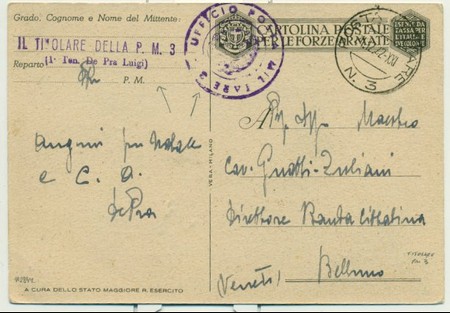 Grado, Cognome e Nome del Mittente:
IL TITOLARE DELLA P. M. 3
(1° Ten. De Pra Luigi)
Reparto
P. M.
UFFICIO POSTALE MILITARE 3
CARTOLINA POSTALE
PER LE FORZE ARMATE
ESENTE DA
TASSA PER
L'ITALIA E
COLONIE
POSTA MILITARE
N. 3
Maestro
Cav.
Direttore Banda Cittadina
(Veneto) Belluno
Auguri per Natale
e C. A.
De Pra
VERA - MILANO
TITOLARE
PM 3
A CURA DELLO STATO MAGGIORE R. ESERCITO